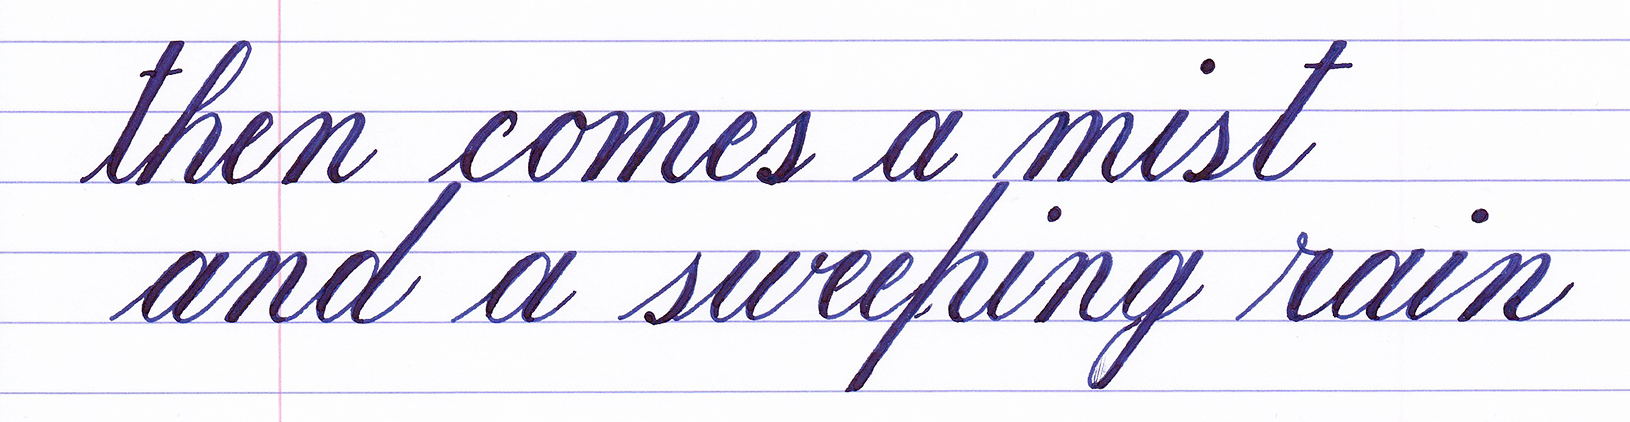 then comes a mist
and a sweeping rain